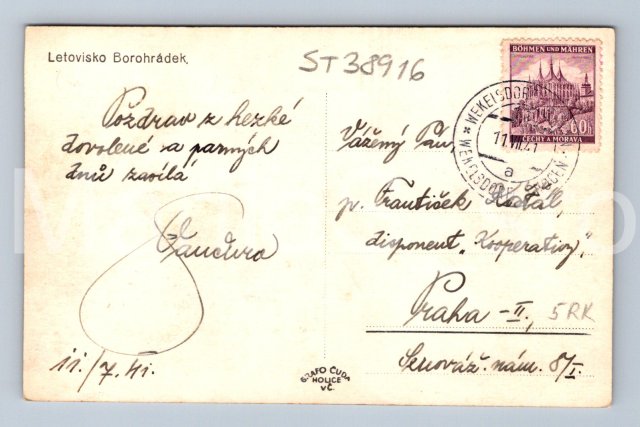 Letovisko Borohrádek
ST38916
BÖHMEN UND MÄHREN
60h
ČECHY A MORAVA
WEKELSDORF
11.VII.41
a
WEKELSDORF
Pozdrav z hezké
dovolené a parných
dnů zasílá
Vančura
11./7.41.
Vážený Pan,
p. František
disponent „Kooperativy“,
Praha -II.,
5RK
Senováž. nám. 8/I.
GRAFO ČUDA
HOLICE
v Č.